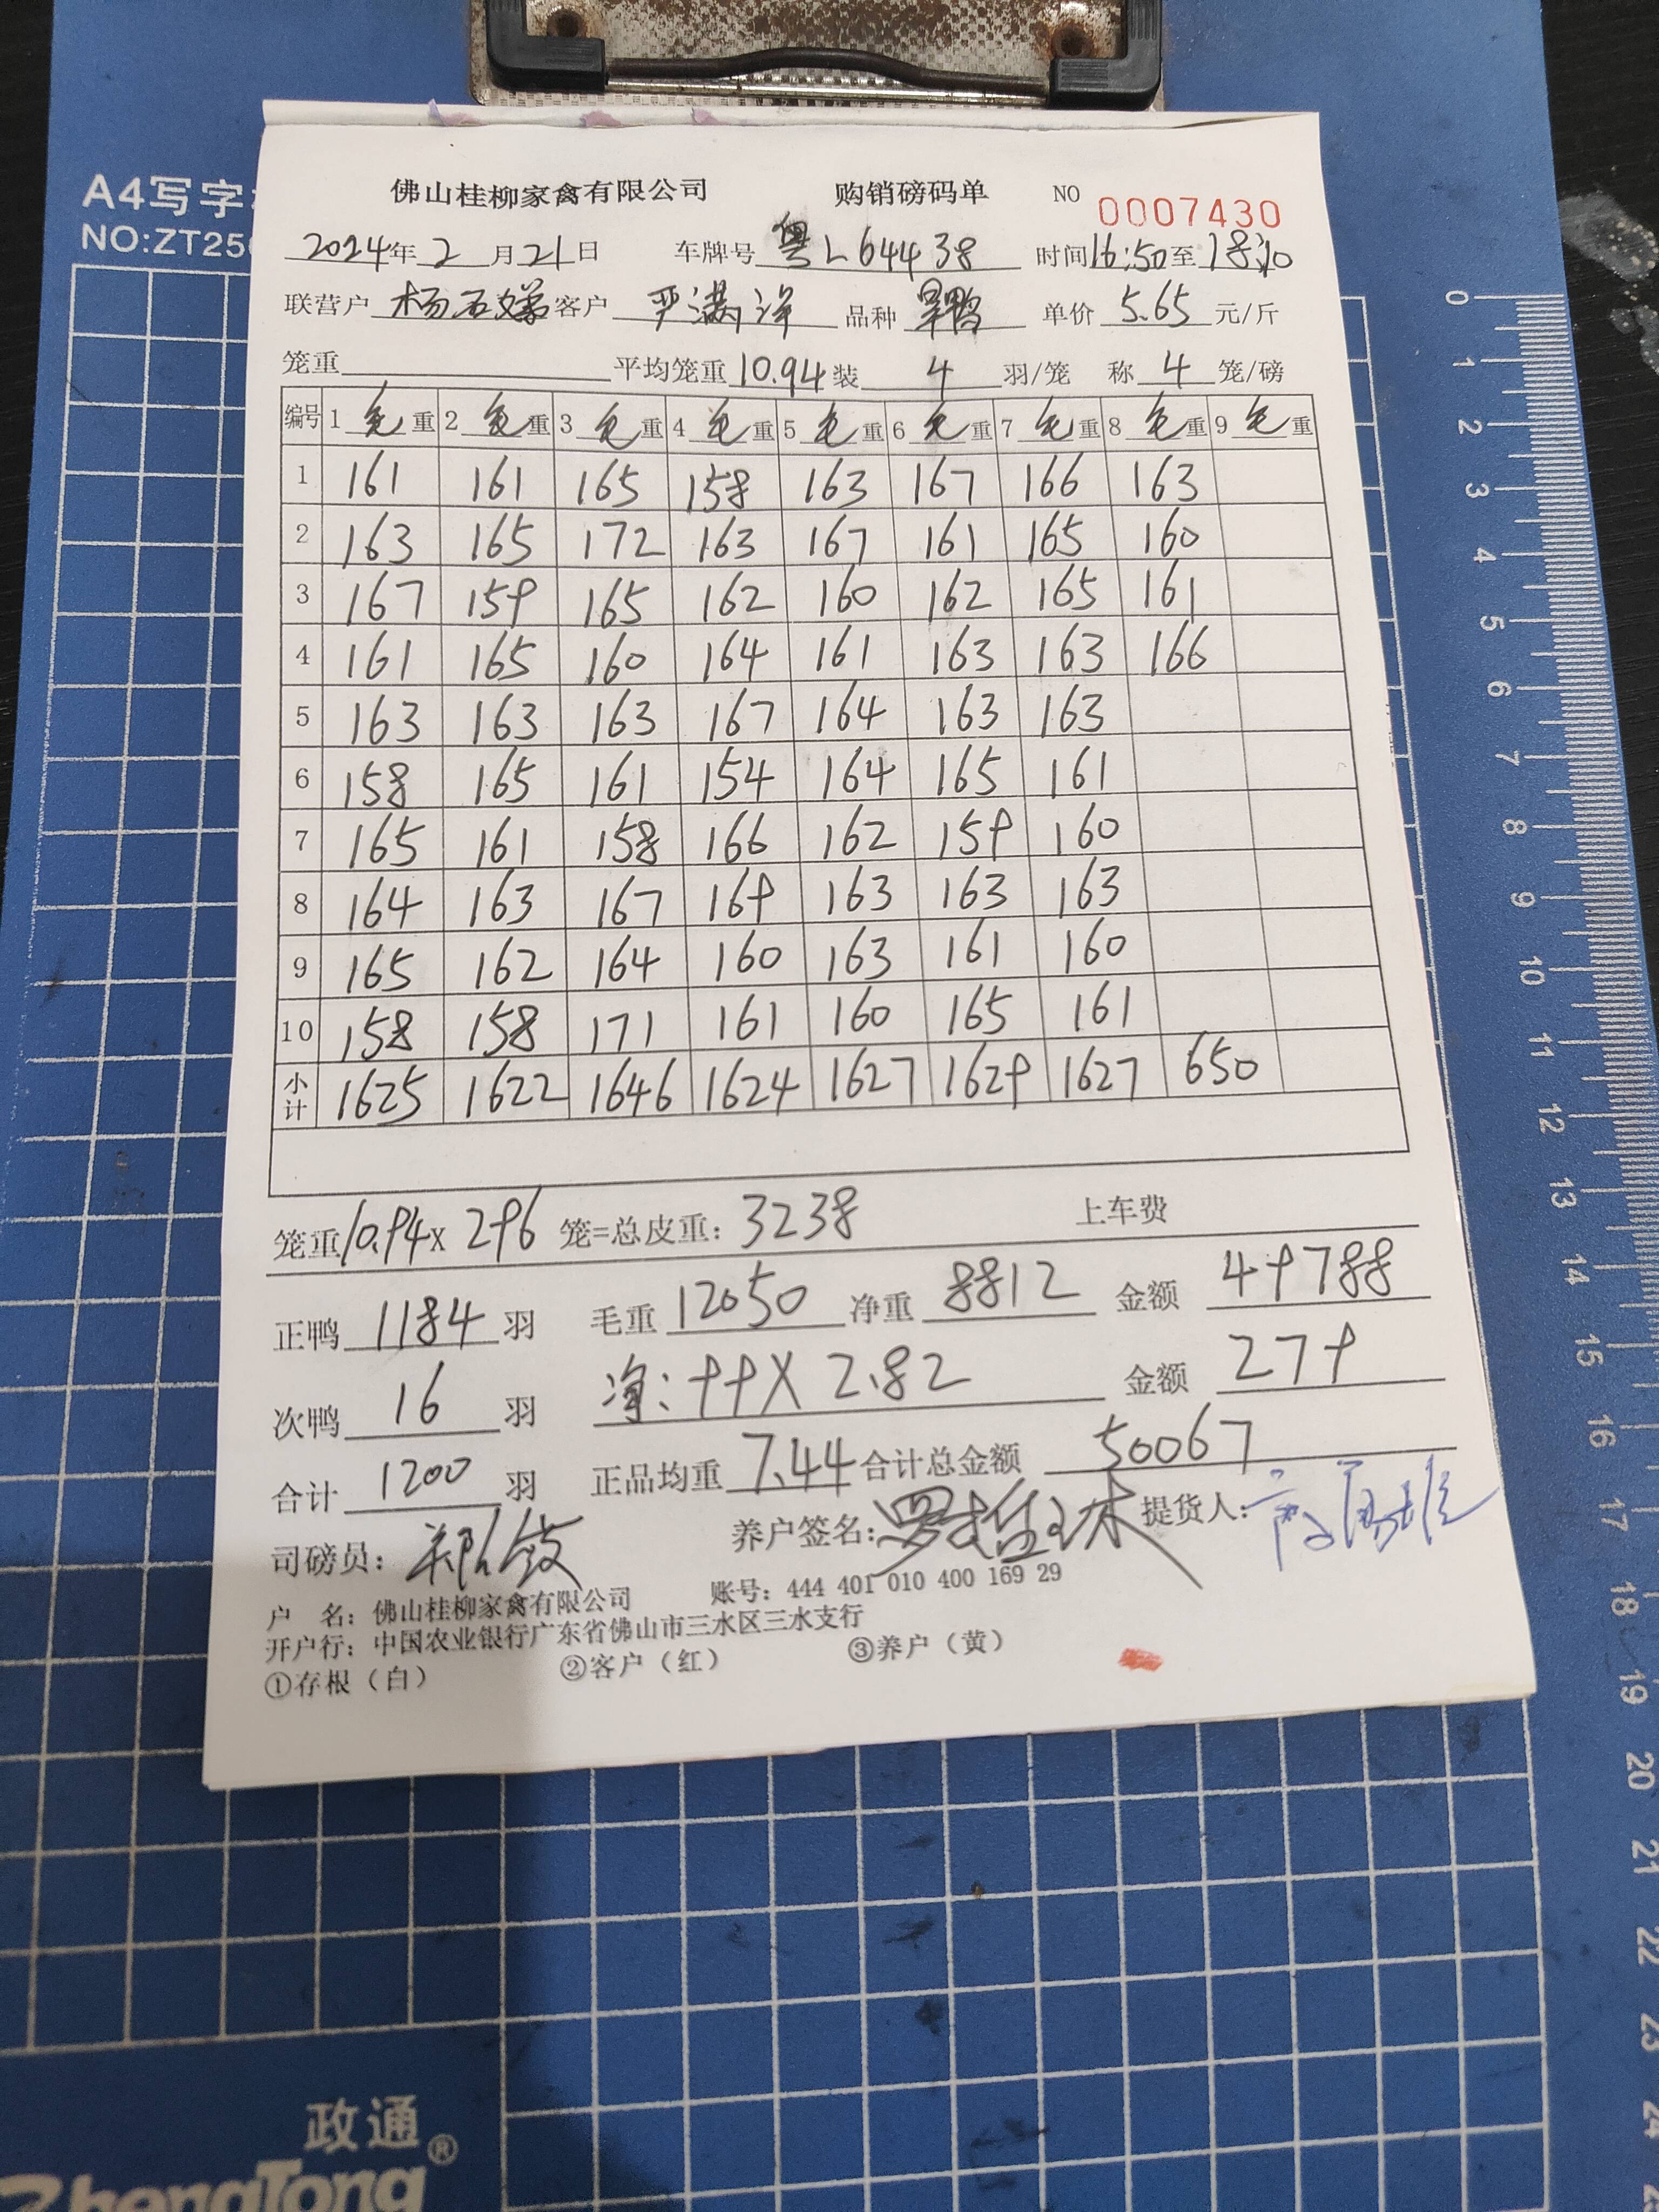 A4写字
NO:ZT25
佛山桂柳家禽有限公司 购销磅码单 NO 0007430
2024年2月21日 车牌号 粤L64438 时间16:50至18:10
联营户 杨石娣 客户 严满洋 品种 旱鸭 单价 5.65 元/斤
笼重 平均笼重 10.94 装 4 羽/笼 称 4 笼/磅
编号 1 毛 重 2 毛 重 3 毛 重 4 毛 重 5 毛 重 6 毛 重 7 毛 重 8 毛 重 9 毛 重
1 161 161 165 158 163 167 166 163
2 163 165 172 163 167 161 165 160
3 167 159 165 162 160 162 165 161
4 161 165 160 164 161 163 163 166
5 163 163 163 167 164 163 163
6 158 165 161 154 164 165 161
7 165 161 158 166 162 159 160
8 164 163 167 169 163 163 163
9 165 162 164 160 163 161 160
10 158 158 171 161 160 165 161
小计 1625 1622 1646 1624 1627 1629 1627 650
笼重10.94x 296 笼=总皮重: 3238 上车费
正鸭 1184 羽 毛重 12050 净重 8812 金额 49788
次鸭 16 羽 净: 99X 2.82 金额 279
合计 1200 羽 正品均重 7.44 合计总金额 50067
司磅员: 养户签名: 提货人:
户 名: 佛山桂柳家禽有限公司 账号: 444 401 010 400 169 29
开户行: 中国农业银行广东省佛山市三水区三水支行
①存根（白） ②客户（红） ③养户（黄）
0
1
2
3
4
5
6
7
8
9
10
11
12
13
14
15
16
18
19
20
21
22
23
24
政通®
ZhengTong